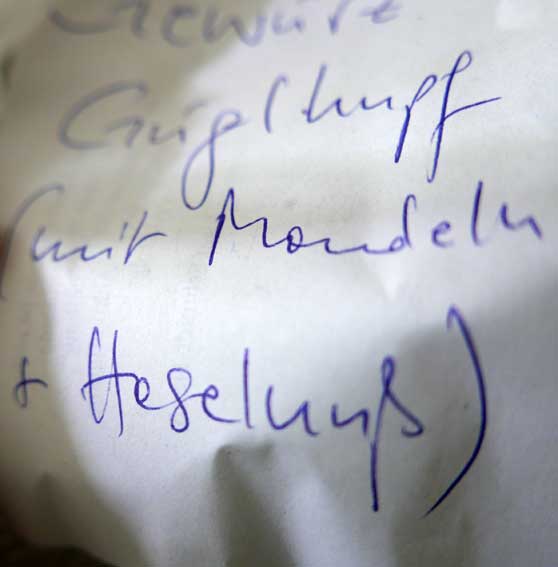 Gewürz
Guglhupf
(mit Mandeln
+ Haselnuß)